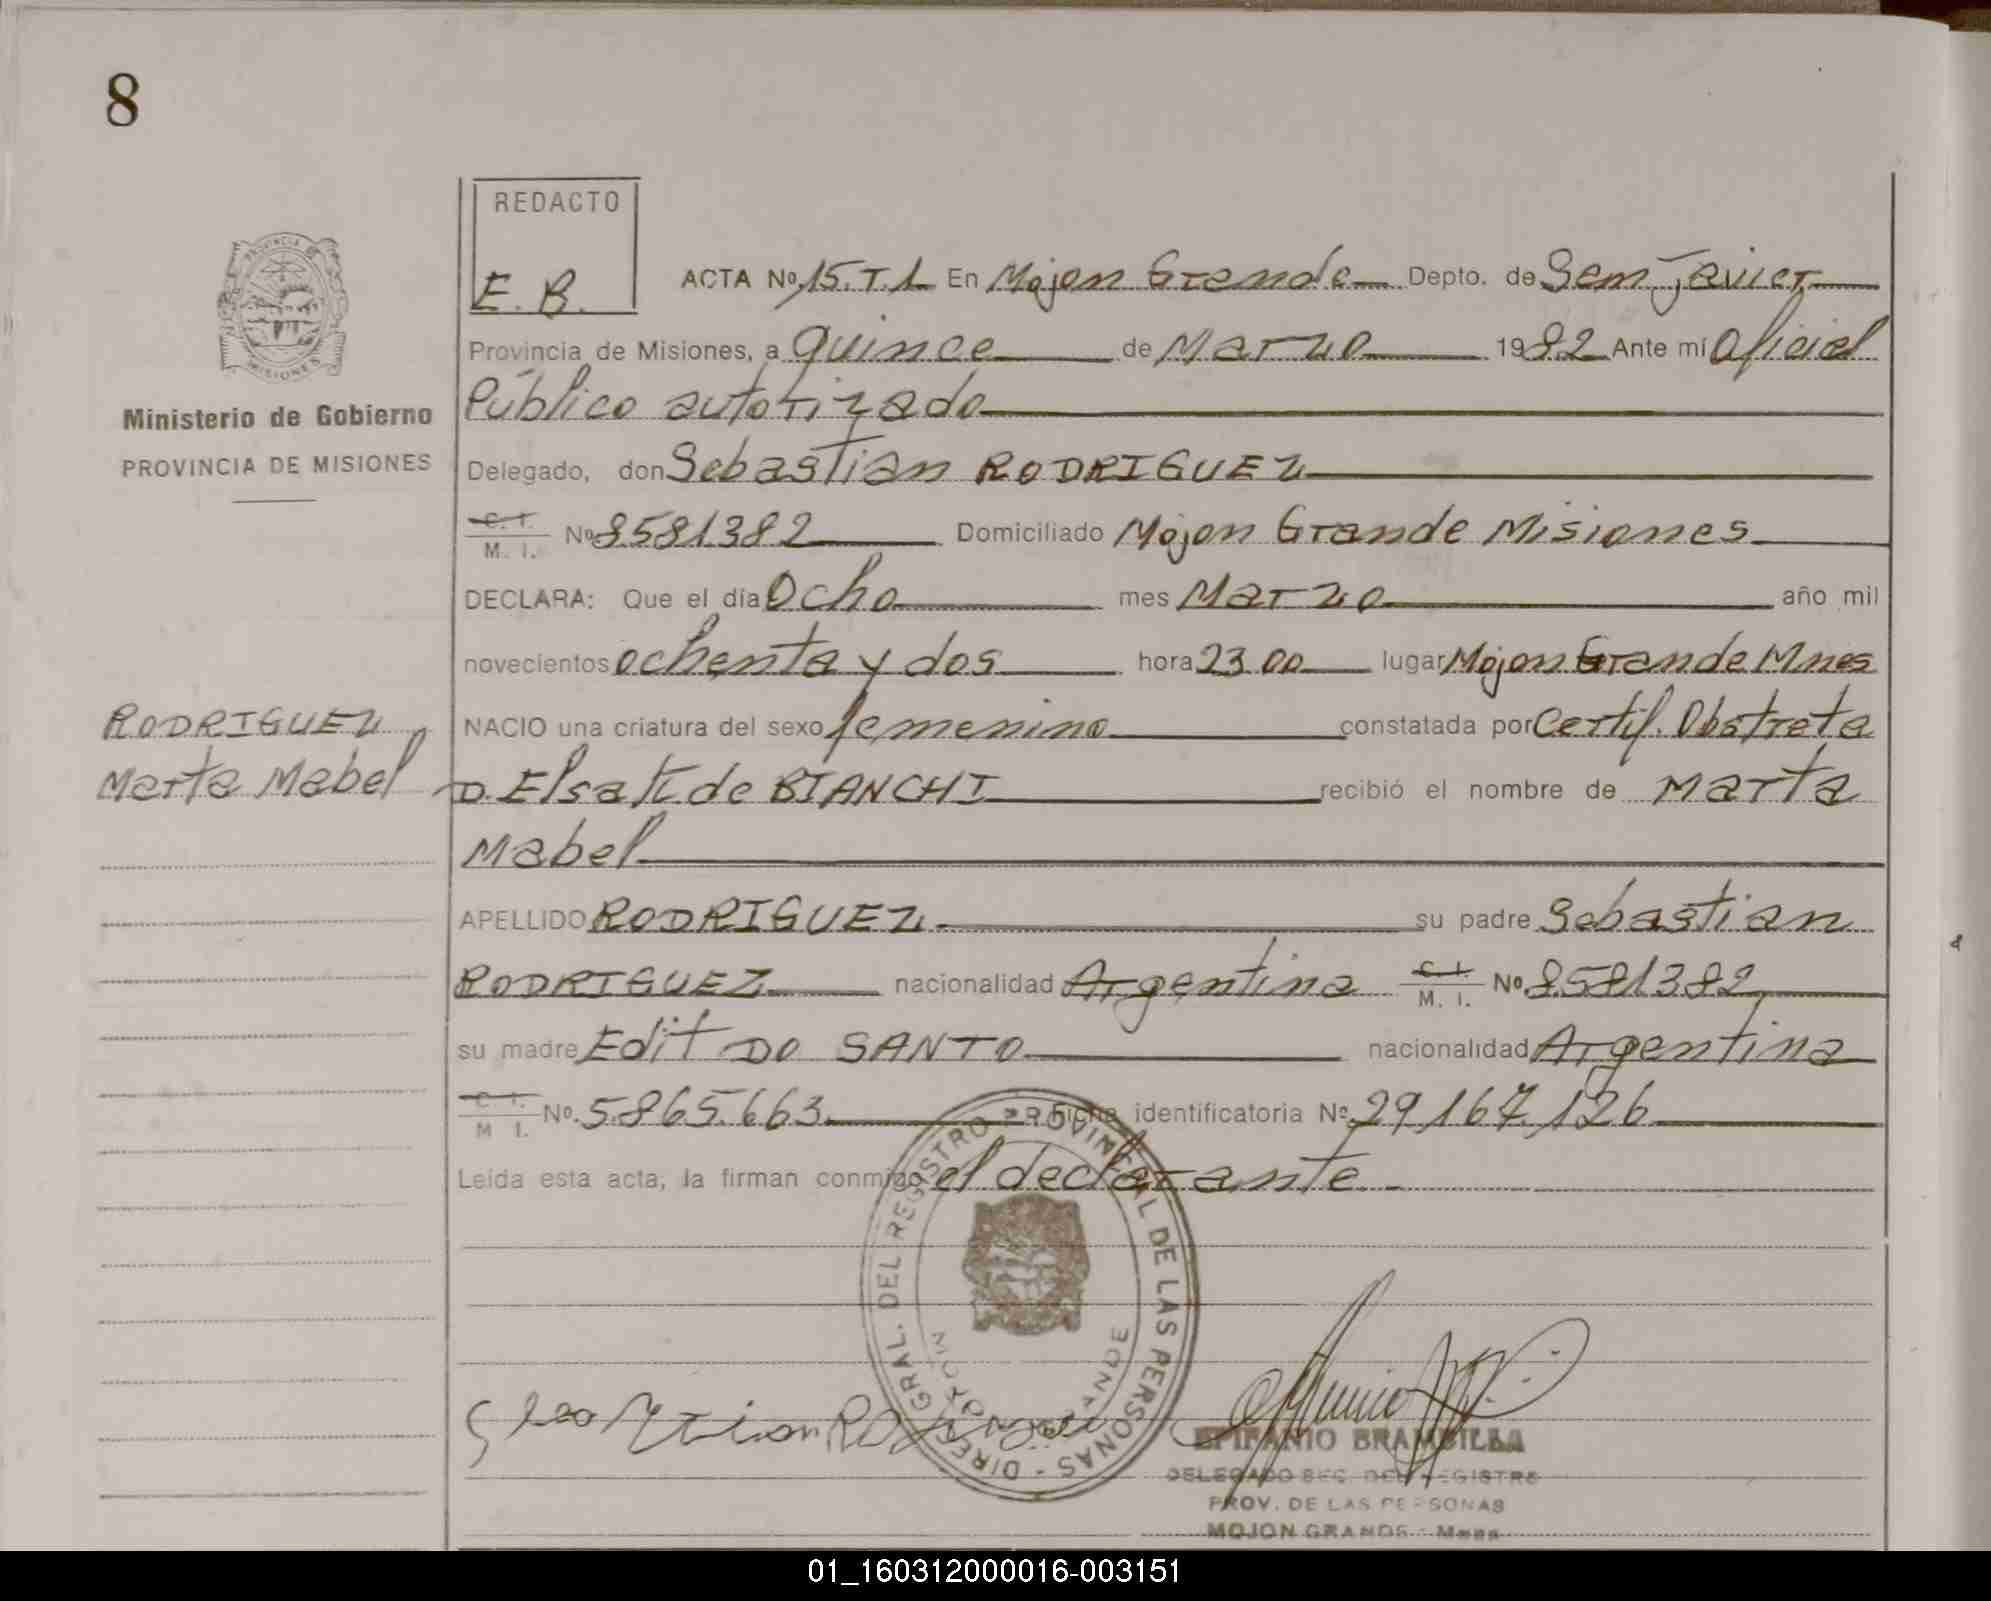 8
REDACTO
E. B.
ACTA Nº 15. T. 1. En Mojon Grande Depto. de San Javier
Provincia de Misiones, a quince de Marzo 1982 Ante mí Oficial
Público autorizado
Delegado, don Sebastian RODRIGUEZ
C. I.
M. I. Nº 8581382 Domiciliado Mojon Grande Misiones
DECLARA: Que el día Ocho mes Marzo año mil
novecientos ochenta y dos hora 23 00 lugar Mojon Grande Mnes
NACIO una criatura del sexo femenino constatada por Certif. Obstreta
D. Elsa K de BIANCHI recibió el nombre de Marta
Mabel
APELLIDO RODRIGUEZ su padre Sebastian
RODRIGUEZ nacionalidad Argentina C. I.
M. I. Nº 8581382
su madre Edit DO SANTO nacionalidad Argentina
C. I.
M I. Nº 5.865.663 Ficha identificatoria Nº 29.167.126
Leída esta acta, la firman conmigo el declarante
PROVINCIA DE
MISIONES
Ministerio de Gobierno
PROVINCIA DE MISIONES
RODRIGUEZ
Marta Mabel
DIREC. GRAL. DEL REGISTRO PROVINCIAL DE LAS PERSONAS -
MOJON GRANDE
EPIFANIO BRAMBILLA
DELEGADO SEC. DEL REGISTRO
PROV. DE LAS PERSONAS
MOJON GRANDE - Mnes
01_160312000016-003151